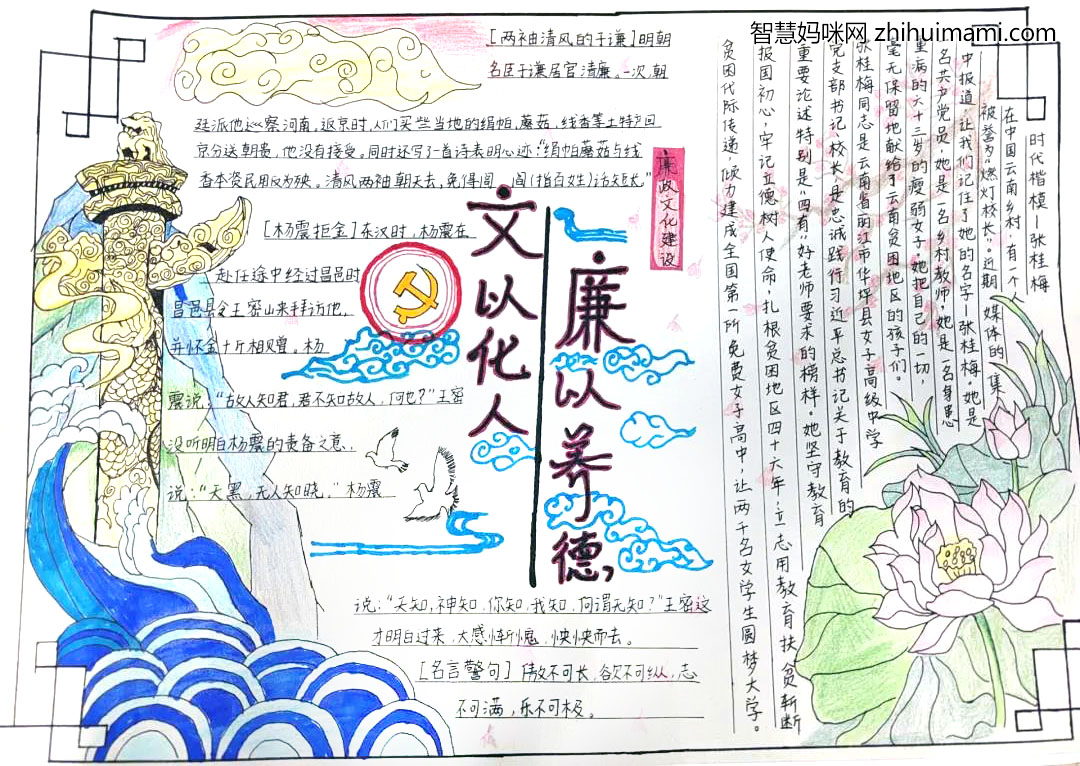 智慧妈咪网 zhihuimami.com
[两袖清风的于谦]明朝
名臣于谦居官清廉。一次,朝
廷派他巡察河南,返京时,人们买些当地的绢帕,蘑菇,线香等土特产回
京分送朝贵,他没有接受。同时还写了首诗表明心迹:“绢帕蘑菇与线
香本资民用反为殃。清风两袖朝天去,免得闾阎(指百姓)话短长。”
[杨震拒金]东汉时,杨震在
赴任途中经过昌邑时
昌邑县令王密山来拜访他,
并怀金十斤相赠。杨
震说:“故人知君,君不知故人,何也?”王密
没听明白杨震的责备之意..
说:“天黑,无人知晓。”杨震
说:“天知,神知,你知,我知,何谓无知?”王密这
才明白过来,大感惭愧,怏怏而去。
[名言警句]傲不可长,欲不可纵,志
不可满,乐不可极。
廉政文化建设
廉以养德,
文以化人
时代楷模—张桂梅
在中国云南乡村,有一个人
被誉为“燃灯校长”。近期媒体的集
中报道,让我们记住了她的名字—张桂梅。她是
名共产党员,她是一名乡村教师,她是一名身患
重病的六十三岁的瘦弱女子,她把自己的一切,
毫无保留地献给了云南贫困地区的孩子们。
张桂梅同志是云南省丽江市华坪县女子高级中学
党支部书记、校长,是忠诚践行习近平总书记关于教育的
重要论述特别是“四有”好老师要求的榜样。她坚守教育
报国初心,牢记立德树人使命,扎根贫困地区四十六年,立志用教育扶贫斩断
贫困代际传递,倾力建成全国第一所免费女子高中,让两千名女学生圆梦大学。